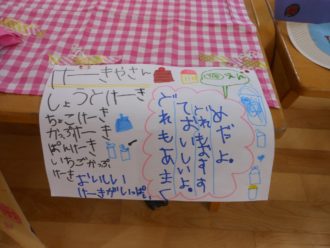 けーきやさん
しょうとけーき
ちょこけーき
かっぷけーき
ぱんけーき
いちごかっぷ
けーき
おいしい
けーきがいっぱい
えん
めだよ。
どれもおすす
ておいしいよ。
どれもあまく